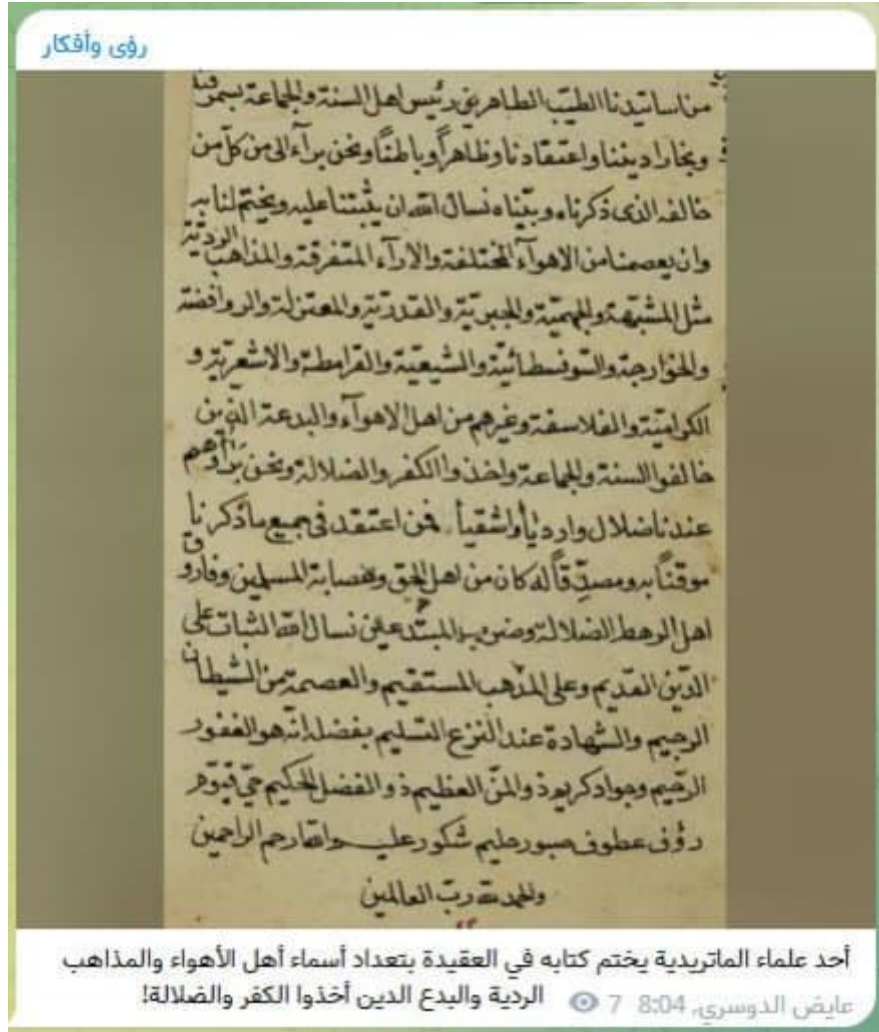 رؤى وأفكار
من اساتيدنا الطيب الطاهرين رئيس اهل السنة والجماعة بسمرقند
وبخارا ديننا واعتقادنا وظاهراً وباطناً ونحن برآء الى من كل من
خالف الذى ذكرناه وبيّناه نسال الله ان يثبتنا عليه ويختم لنا به
وان يعصمنا من الاهوآء المختلفة والارآء المتفرقة والمذاهب الرديّة
مثل المشبّهة والجهميّة والجبريّة والقدريّة والمعتزلة والروافضة
والخوارجة والسّوفسطائيّة والشيعيّة والقرامطة والاشعريّة و
الكراميّة والفلاسفة وغيرهم من اهل الاهوآء والبدعة الذين
خالفوا السنة والجماعة واخذوا الكفر والضلالة ونحن برآء وهم
عندنا ضلال واردياً واشقيأ فمن اعتقد فى جميع ما ذكرنا
موقناً به ومصدّقاً له كان من اهل الحق وعصابة المسلمين وفارق
اهل الرهط الضلالة وضرب المبتدعين نسال الله الثبات على
الدّين القديم وعلى المذهب المستقيم والعصمة من الشيطان
الرجيم والشهادة عند النزع التسليم بفضله انّه هو الغفور
الرّحيم وجواد كريم ذو المنّ العظيم ذو الفضل الحكيم حىّ قيّوم
رؤف عطوف صبور حليم شكور عليم والله ارحم الراحمين
والحمد لله ربّ العالمين
أحد علماء الماتريدية يختم كتابه في العقيدة بتعداد أسماء أهل الأهواء والمذاهب
الردية والبدع الدين أخذوا الكفر والضلالة!
عايض الدوسري, 8:04 7